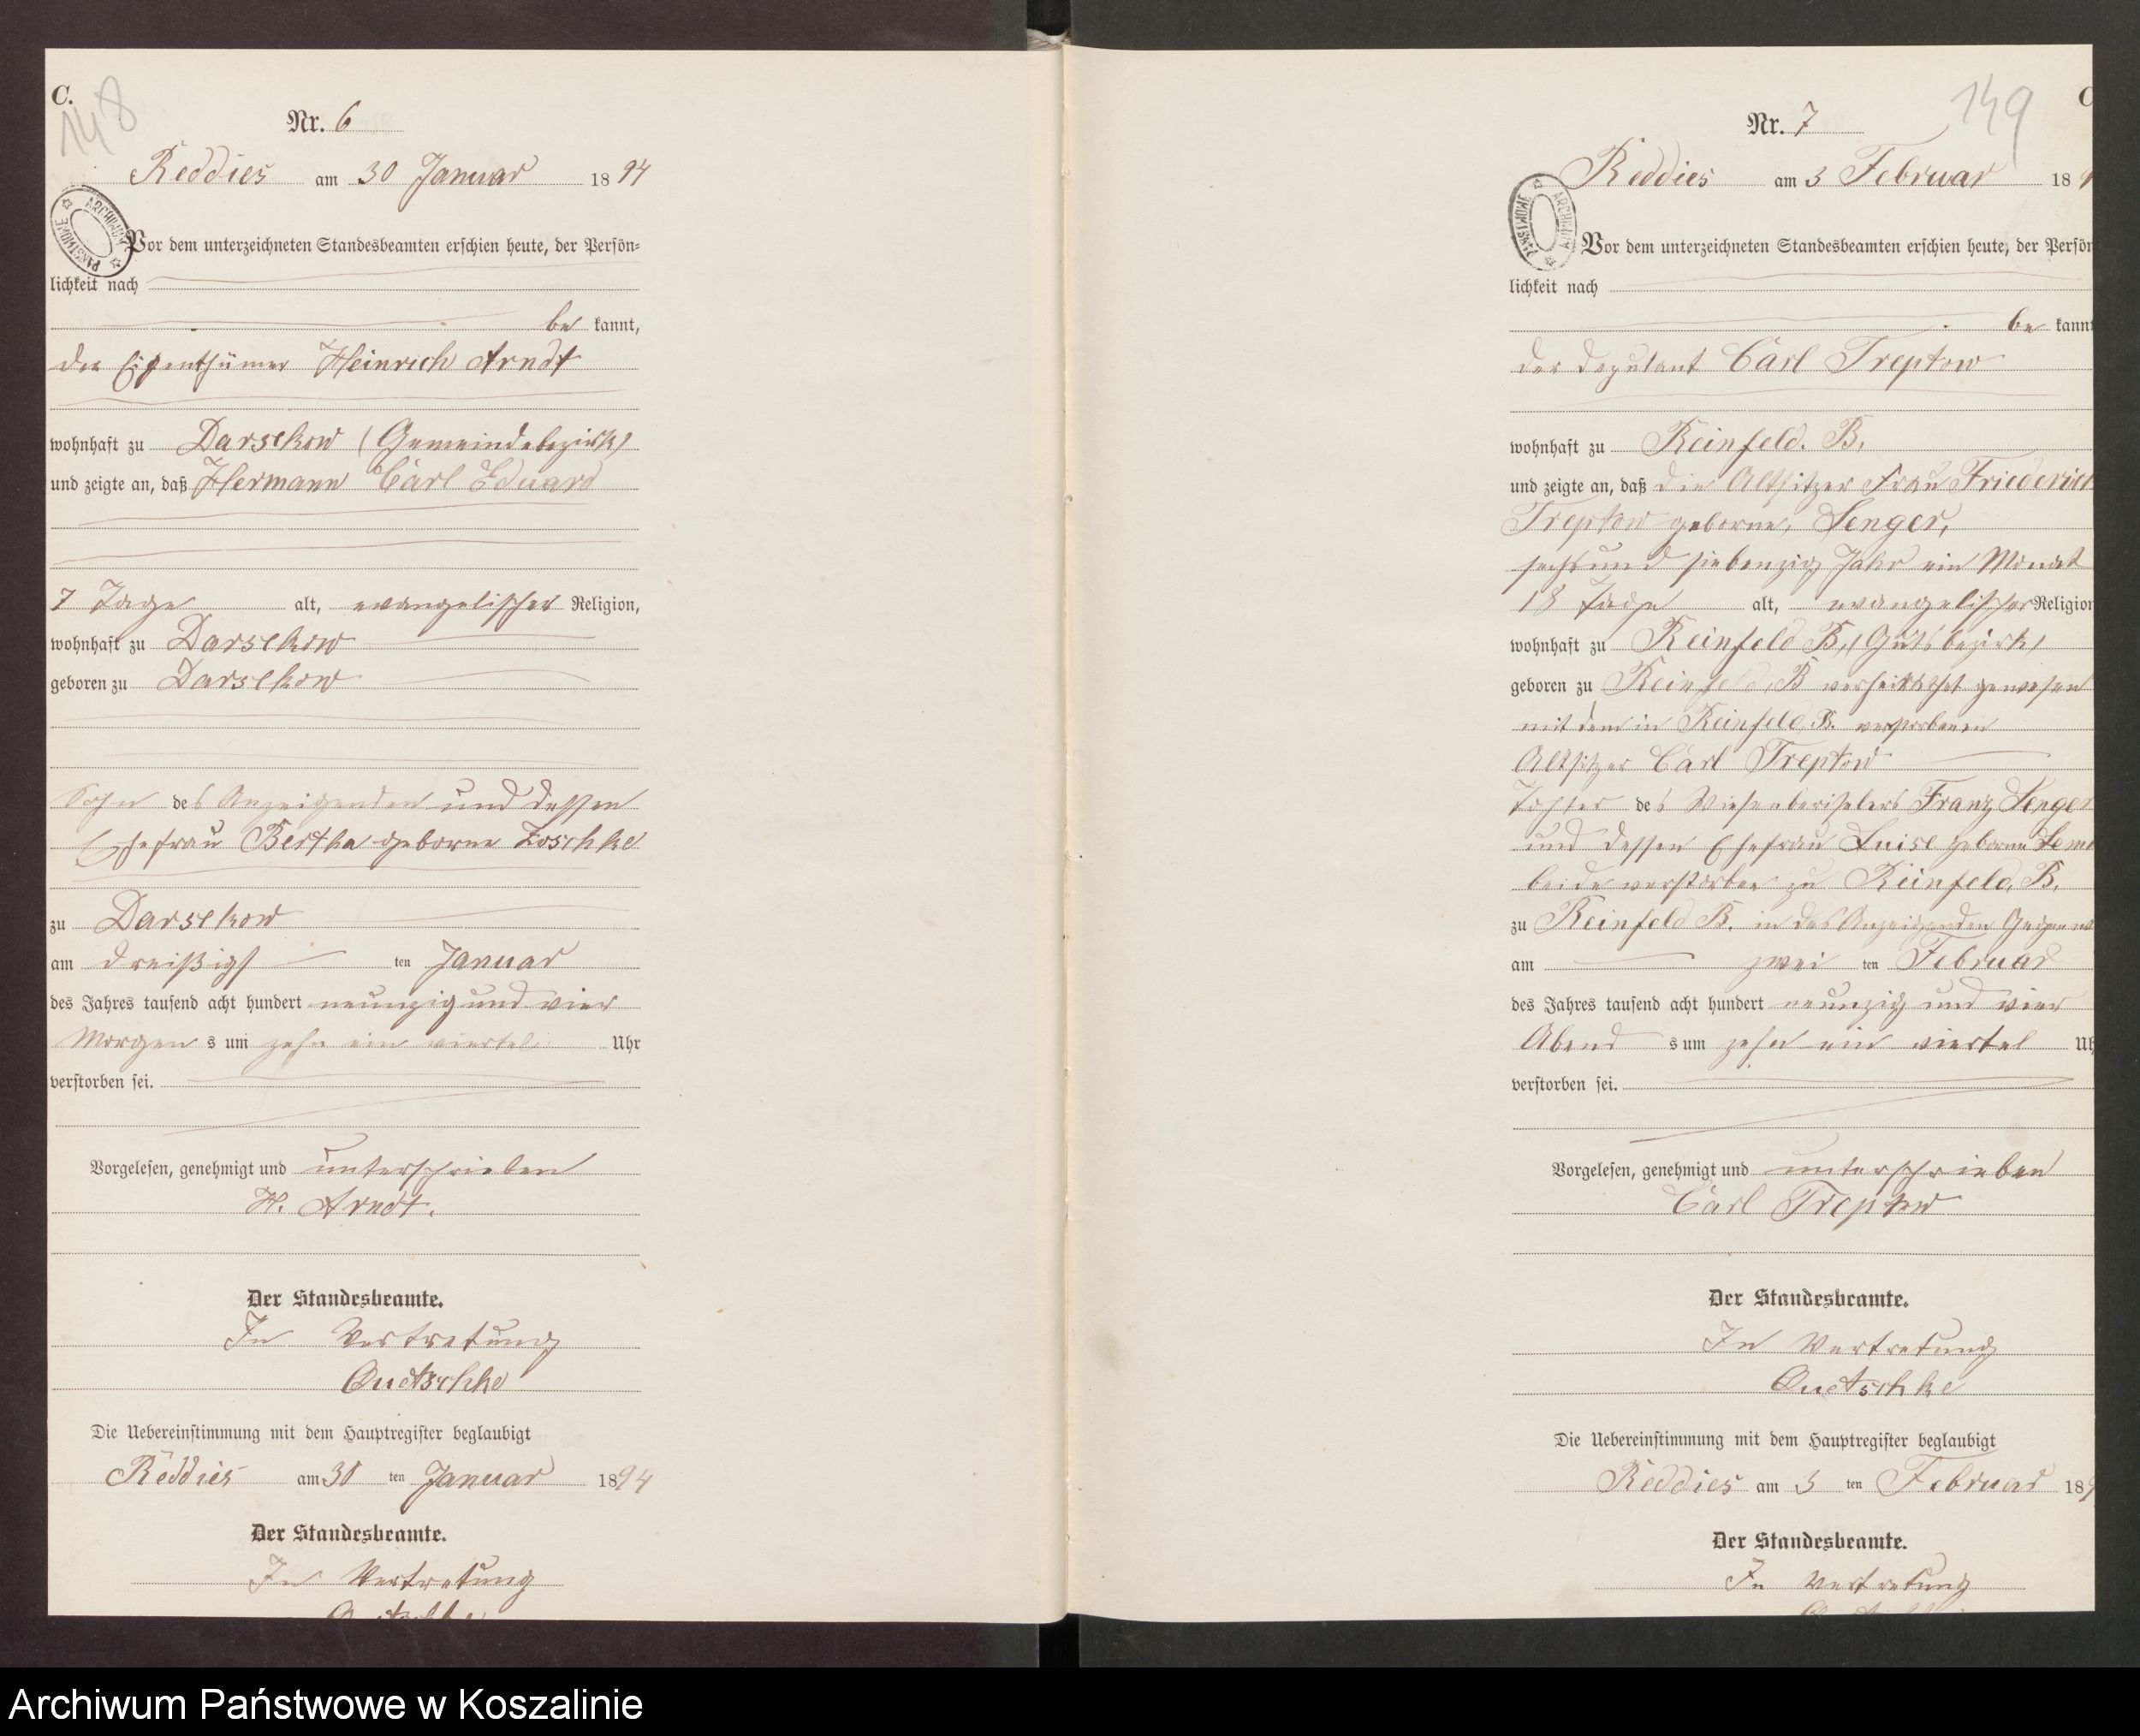 C.
148
Nr. 6
Reddies am 30 Januar 1894
PAŃSTWOWE ARCHIWUM
Vor dem unterzeichneten Standesbeamten erschien heute, der Persön-
lichkeit nach
be kannt,
der Eigenthümer Heinrich Arndt
wohnhaft zu Darsekow (Gemeindebezirk)
und zeigte an, daß Hermann Carl Eduard
7 Tage alt, evangelischer Religion,
wohnhaft zu Darsekow
geboren zu Darsekow
Sohn des Anzeigenden und dessen
Ehefrau Bertha geborne Zoschke
zu Darsekow
am dreißigs ten Januar
des Jahres tausend acht hundert neunzig und vier
Morgen s um zehn ein viertel Uhr
verstorben sei.
Vorgelesen, genehmigt und unterschrieben
H. Arndt.
Der Standesbeamte.
In Vertretung
Quetschke
Die Uebereinstimmung mit dem Hauptregister beglaubigt
Reddies am 30 ten Januar 1894
Der Standesbeamte.
In Vertretung
149
C
Nr. 7
Reddies am 3 Februar 189
PAŃSTWOWE ARCHIWUM
Vor dem unterzeichneten Standesbeamten erschien heute, der Persön
lichkeit nach
be kannt
der Deputant Carl Treptow
wohnhaft zu Reinfeld. B.
und zeigte an, daß die Altsitzer Frau Friederick
Treptow geborne, Senger,
sechsund siebenzig Jahr ein Monat
18 Tage alt, evangelischer Religion
wohnhaft zu Reinfeld B, (Gutsbezirk)
geboren zu Reinfeld, B verheirathet gewesen
mit dem in Reinfeld, B. verstorbenen
Altsitzer Carl Treptow
Tochter des Franz Senger
und dessen Ehefrau Luise geborne
beide verstorben zu Reinfeld, B.
zu Reinfeld B. in des Anzeigenden Gegenw
am zwei ten Februar
des Jahres tausend acht hundert neunzig und vier
Abend s um zehn ein viertel Uh
verstorben sei.
Vorgelesen, genehmigt und unterschrieben
Carl Treptow
Der Standesbeamte.
In Vertretung
Quetschke
Die Uebereinstimmung mit dem Hauptregister beglaubigt
Reddies am 3 ten Februar 189
Der Standesbeamte.
In Vertretung
Archiwum Państwowe w Koszalinie